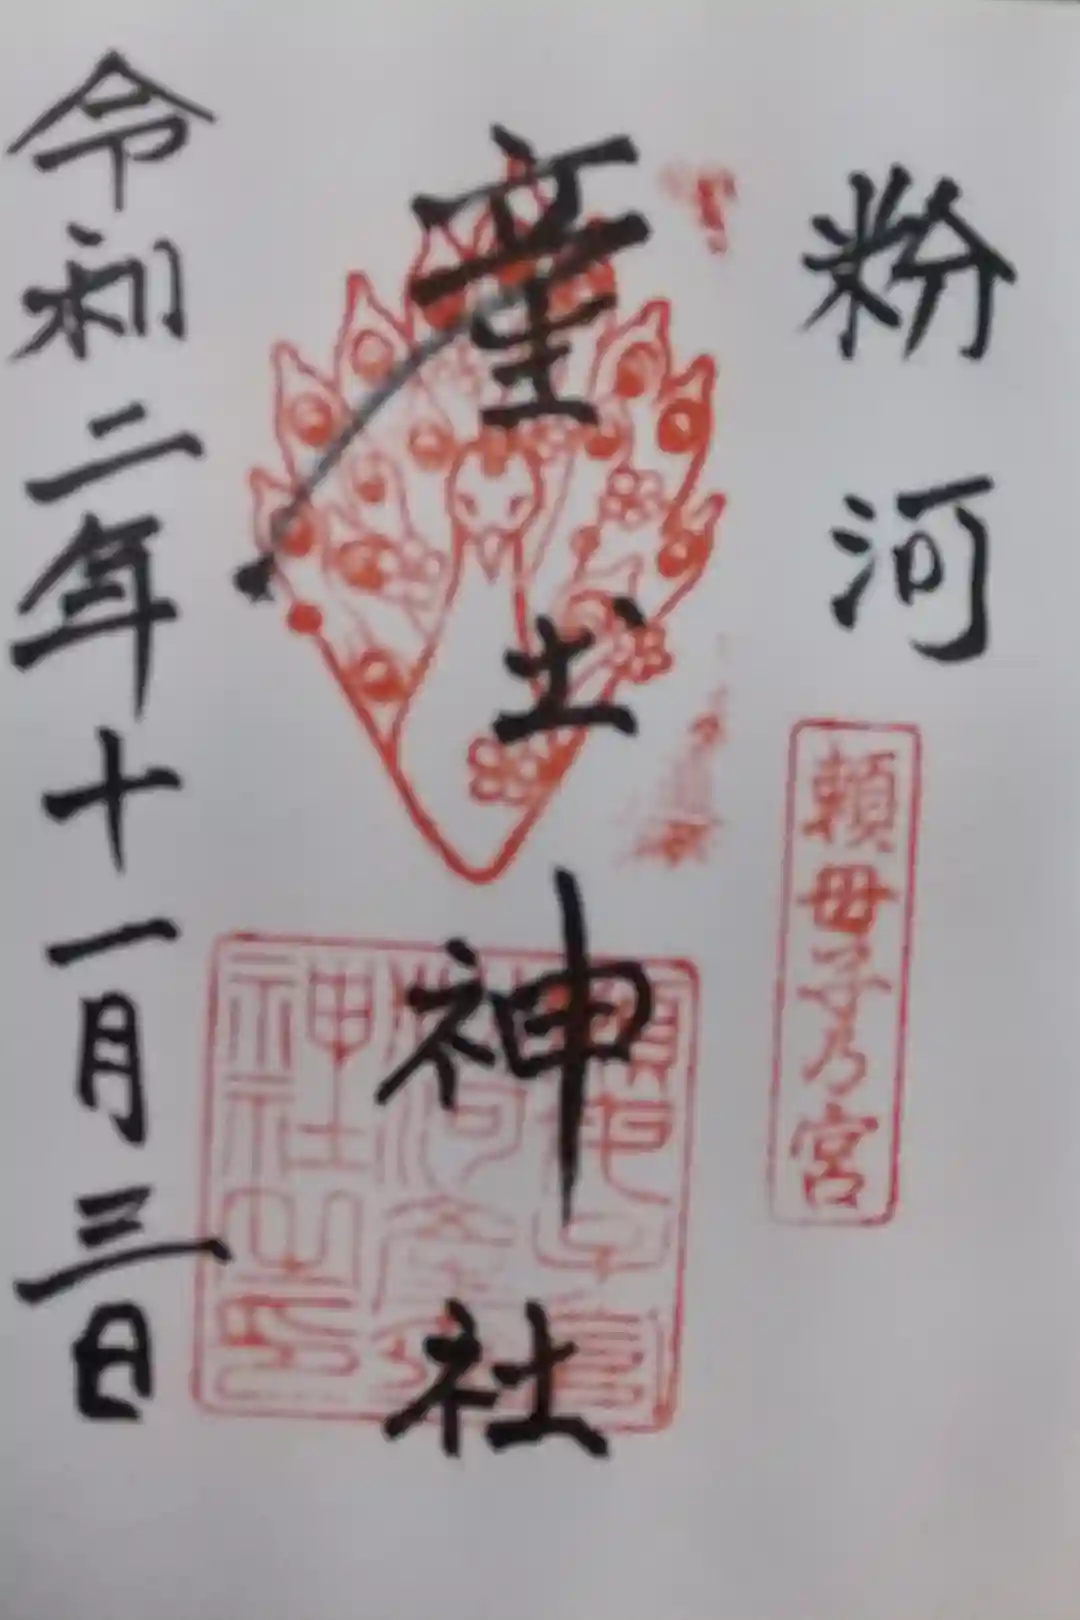 粉河
頼母子乃宮
産土神社
令和二年十一月三日